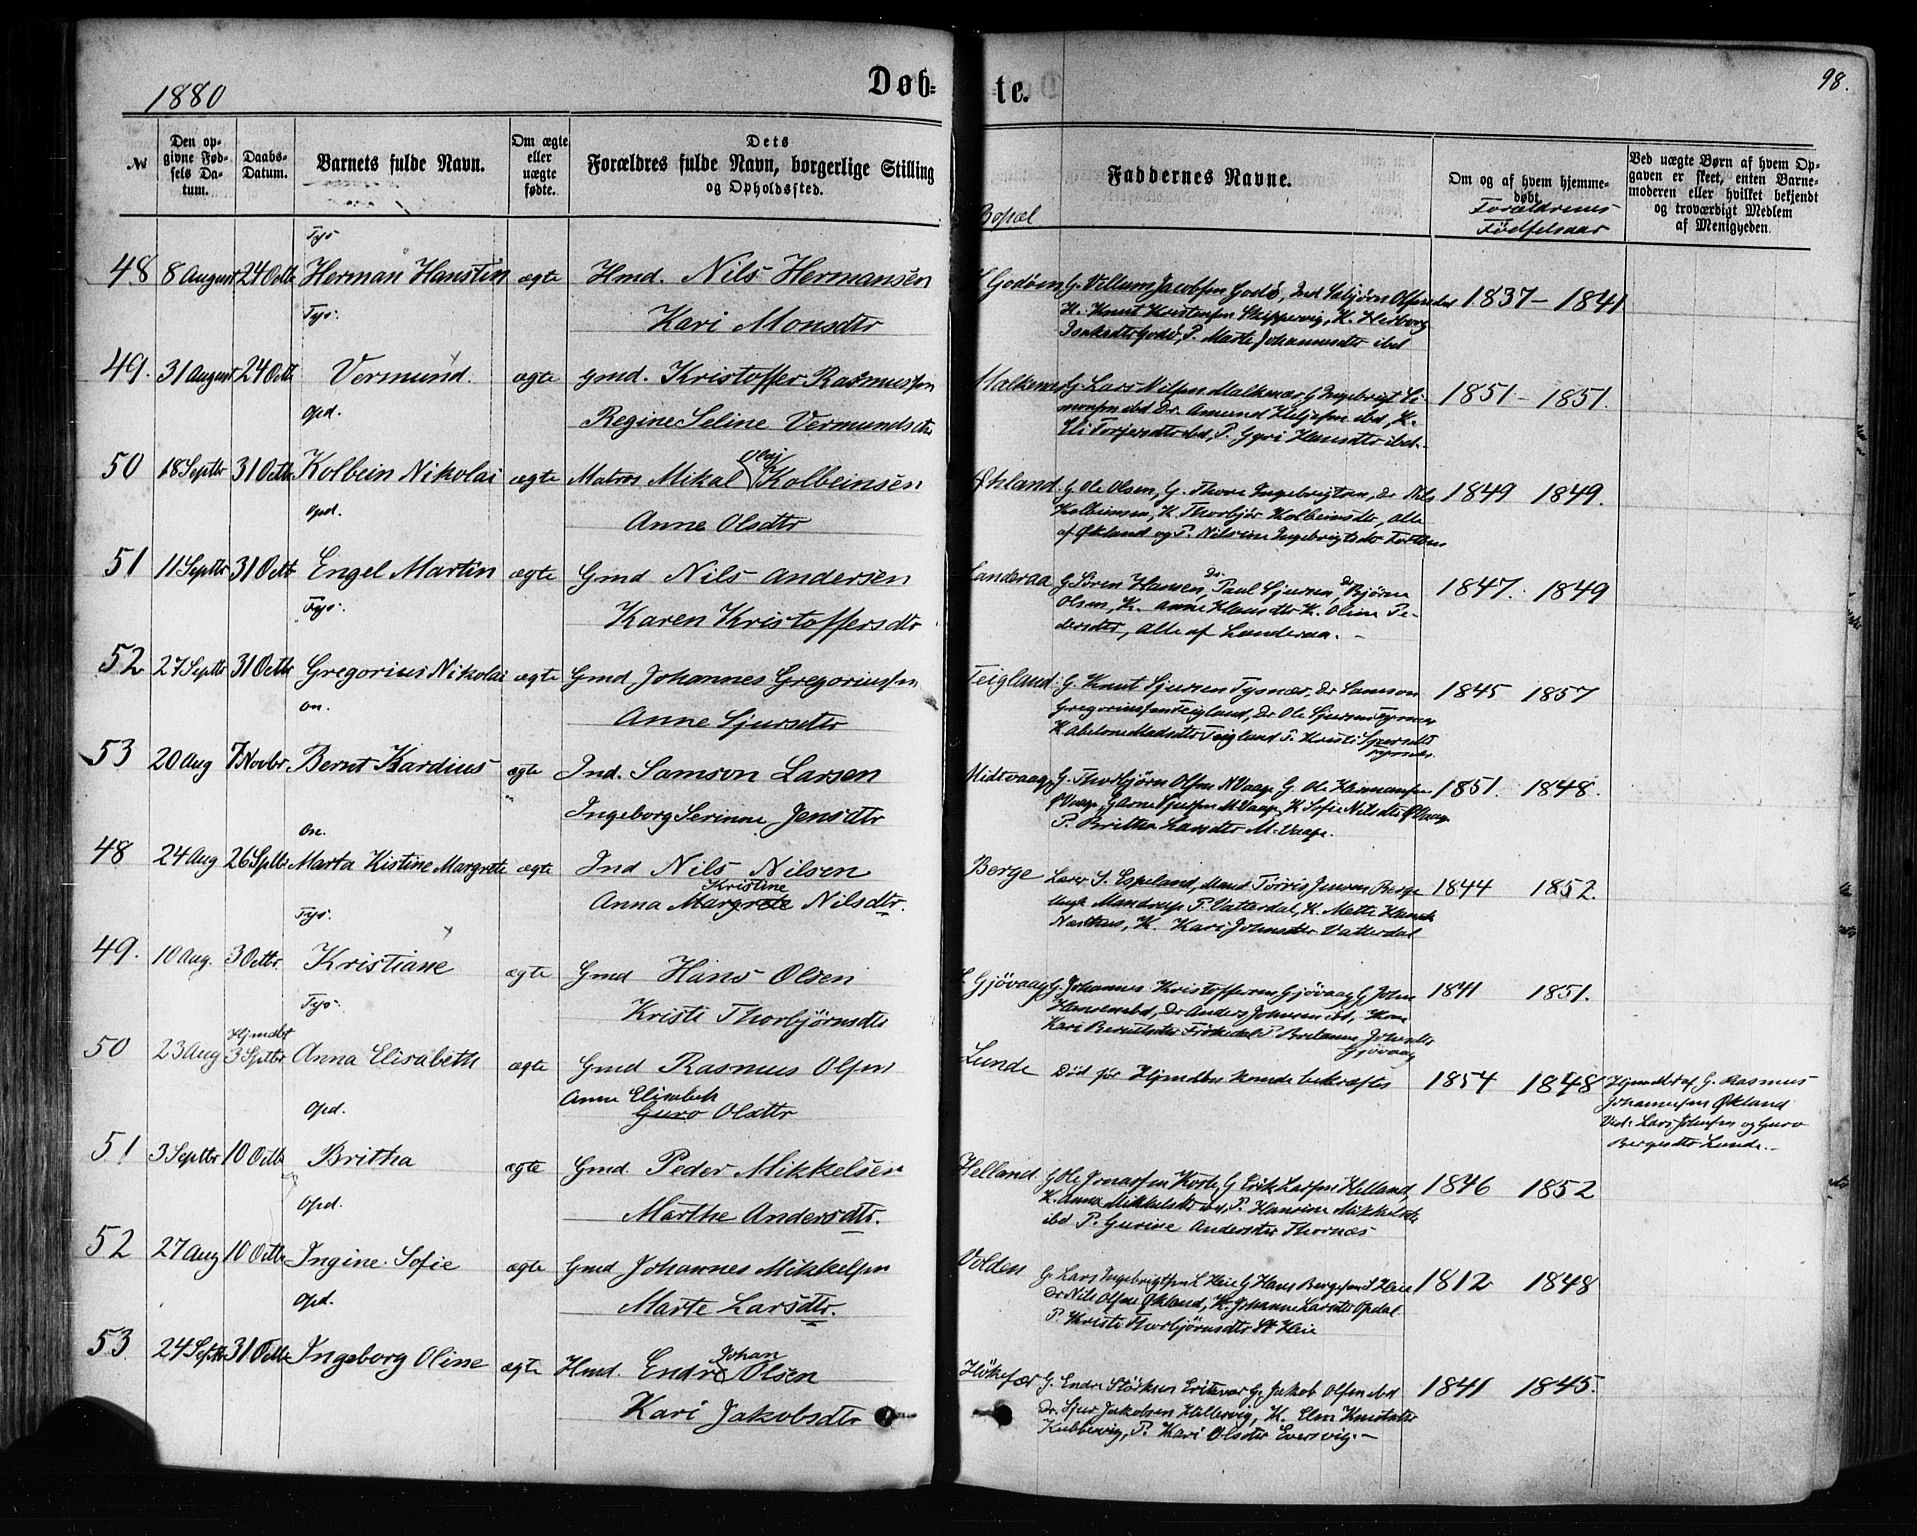 1880
Døb=
te.
98.
№
Den op-
givne Fød-
sels Da-
tum.
Daabs-
Datum.
Barnets fulde Navn.
Om ægte
eller
uægte
fødte.
Dets
Forældres fulde Navn, borgerlige Stilling
og Opholdssted.
Bopæl
Faddernes Navne.
Om og af hvem hjemme-
døbt.
Forældrenes
Fødselsaar
Ved uægte Børn af hvem Op-
gaven er skeet, enten Barne-
moderen eller hvilket bekjendt
og troværdigt Medlem
af Menigheden.
Tys
48 8 August 24 Octb Herman Hanstin ægte Hmd. Nils Hermansen
Kari Monsdtr
Godøen G. Villum Jacobsen Godø, Ind Olsen ibd 1837 - 1841
K. Knut Kristensen Skippervig, K. Herborg
Isaksdtr Godö, P. Marte Johannesdtr ibd
Tys.
49. 31 August 24 Octb Vermund. ægte gmd. Kristoffer Rasmussen
Regine Seline Vermundsdtr
Malkenes G. Lars Nilsen Malkenæs G Ingebrigt Si- 1851 - 1851.
monsen ibd Dr. Amund Helgesen ibd, K.
Eli Torjersdtr ibd, P. Gyri Hansdtr ibd.
Opd.
50 18 Septbr 31 Octb Kolbein Nikolai ægte Matros Mikal Olaj Kolbeinsen
Anne Olsdtr
Økland. G Ole Olsen, G. Thore Ingebrigtsen, Dr Nils 1849 1849.
Kolbeinsen, K. Thorbjør Kolbeinsdtr, Alle
af Økland og P. Nilsine Ingebrigtsdtr
Opd.
51 11 Septbr 31 Octb Engel Martin ægte Gmd Nils Andersen
Karen Kristoffersdtr
Landeraa G Sören Hansen, Dr Paul Sjursen, Dr Bjørne 1847. 1849
Olsen, K. Anne Klausdtr K. Oline Pe-
dersdtr, Alle af Landeraa. -
Tys.
52 27 Septbr 31 Octb Gregorius Nikolai ægte Gmd Johannes Gregoriussen
Anne Sjursdtr
Teigland. G. Knut Sjursen Tysnæs, Dr Samson 1845 1857
Gregoriussen Teigland, Dr Ole Sjursen Tysnæs
K Abelone Madsdtr Teigland P. Kristi Sjursdtr
Tysnæs.
On.
53 20 Aug 7 Novbr Bernt Kardius ægte Ind. Samson Larsen
Ingeborg Serinne Jensdtr
Midtvaage G. Thorbjørn Olsen N Vaage G. Ole Hermansen 1851. 1848.
Ø Vaage, G Arne Sjursen M. Vaage, K. Sofie Nilsdtr Ø Vaage
P. Britha Larsdtr M. Vaage.
On.
48 24 Aug 26 Sptbr Marta Kistine Margrete ægte Ind Nils Nilsen
Kristine
Anna Margrete Nilsdtr.
Berge Lærer S. Espeland, Torris Jensen Berge 1844 1852.
Mandrup P. Vatterdal, K. Mette
K. Kari Johnsdtr Vatterdal
Tys.
49. 10 Aug. 3 Octbr. Kristiane ægte Gmd Hans Olsen
Kristi Thorbjørnsdtr
L Gjövaag G. Johannes Kristoffersen Gjövaag G John 1841 1851.
Hansen ibd, Dr Anders Johnsen ibd, Kone
Kari Berntsdtr Frökedal P Johnsdtr
Gjövaag
Tys.
Hjmdbt
50 23 Aug 3 Septbr Anna Elisabeth ægte Gmd Rasmus Olsen
Anne Elisabeth
Guro Olsdtr
Lunde Död för Hjmdbn kunde bekræftes 1854 1848 Hjmdbt af G. Rasmus
Johannesen Økland
Vid: Lars Johnsen og Guro
Bergesdtr Lunde.-
Opd.
51 3 Septbr 10 Octb Britha ægte Gmd. Peder Mikkelsen
Marthe Andersdtr.
Helland. G Ole Jonassen Korte, G Erik Larsen Helland, 1846 1852
K. Anna Mikkelsdtr ibd, P. Hansine Mikkelsdtr
ibd P. Gurine Andersdtr Thornæs
Opd.
52 27 Aug 10 Octb Ingine Sofie ægte Gmd Johannes Mikkelsen
Marte Larsdtr.
Volden G. Lars Ingebrigtsen L Heie G Hans Bergesen L Heie 1812 1848
Dr Nils Olsen Økland, K. Johanne Larsdtr Opdal
P. Kristi Thorbjørnsdtr St Heie
Opd.
53 24 Septbr 31 Octb Ingeborg Oline ægte Hmd. Endre Johan Olsen
Kari Jakobsdtr
Hökefær G. Endre Störksen Eriksvær G. Jakob Olsen ibd 1841 1845.
Dr. Sjur Jakobsen Hillervig, K. Elen Knutsdtr
Kubbervig, P. Kari Olsdtr Eversvig.-